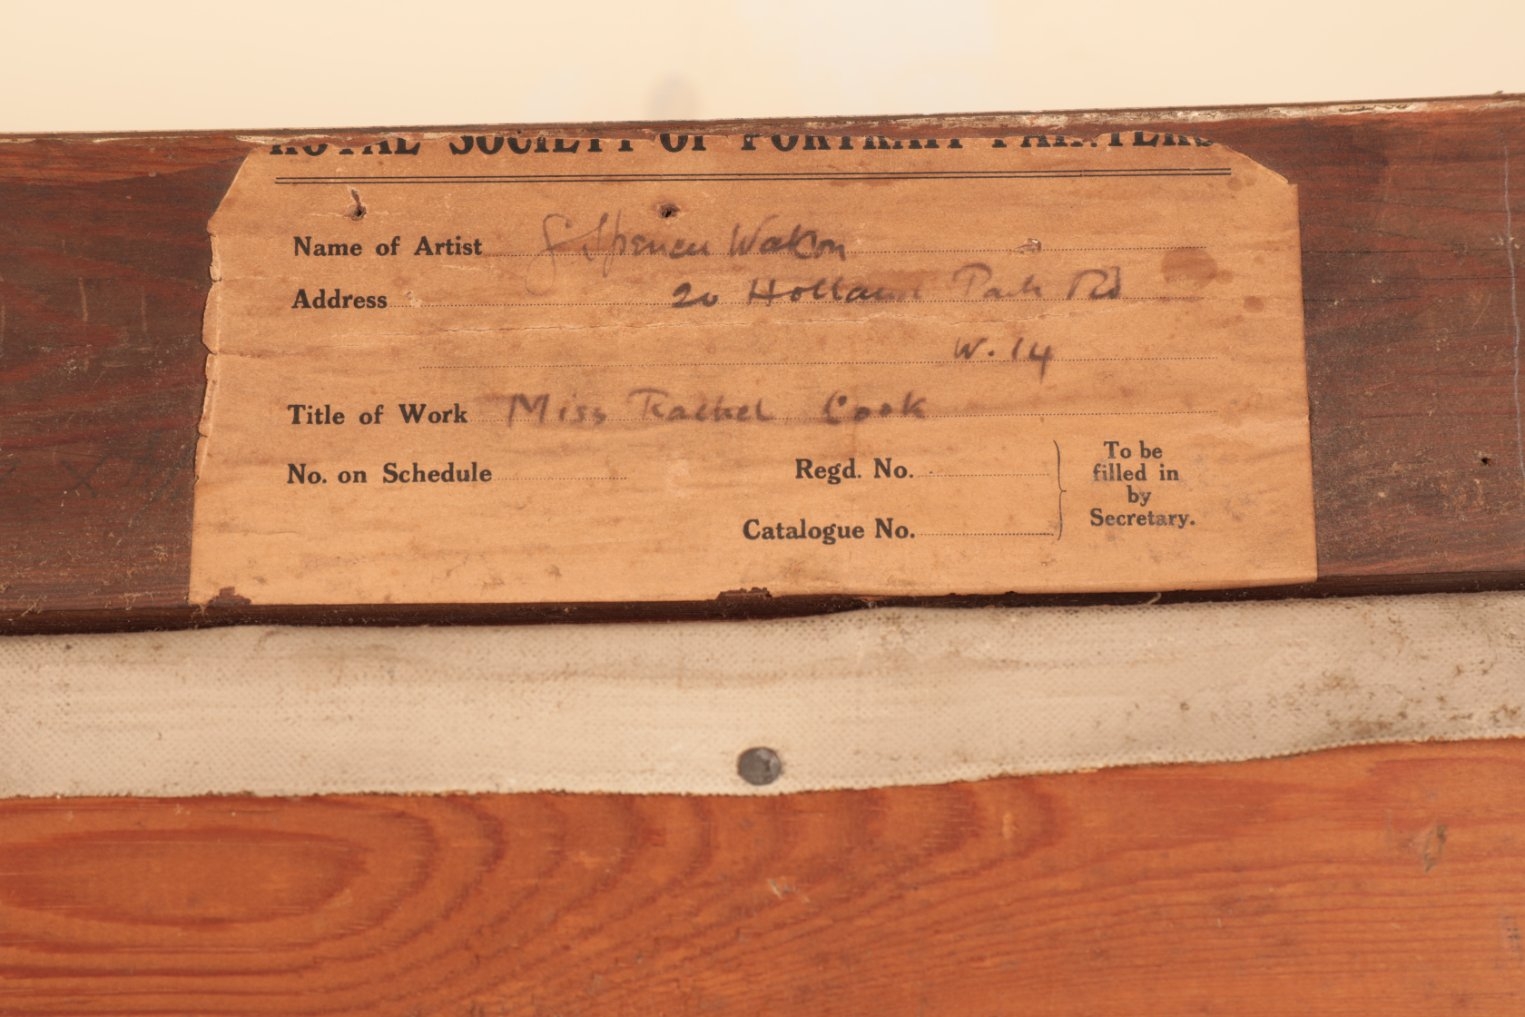 ROYAL SOCIETY OF PORTRAIT PAINTERS
Name of Artist G Spencer Watson
Address 20 Holland Park Rd
W. 14
Title of Work Miss Rachel Cook
No. on Schedule Regd. No. To be filled in by Secretary.
Catalogue No.